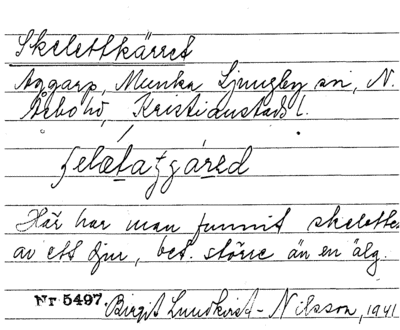 Skelettkärret
Aggarp, Munka Ljungby sn, N.
Åsbo hd, Kristianstads l.
Här har man funnit skelettet
av ett djur, bet. större än en älg.
Nr 5497. Birgit Lundkvist-Nilsson, 1941